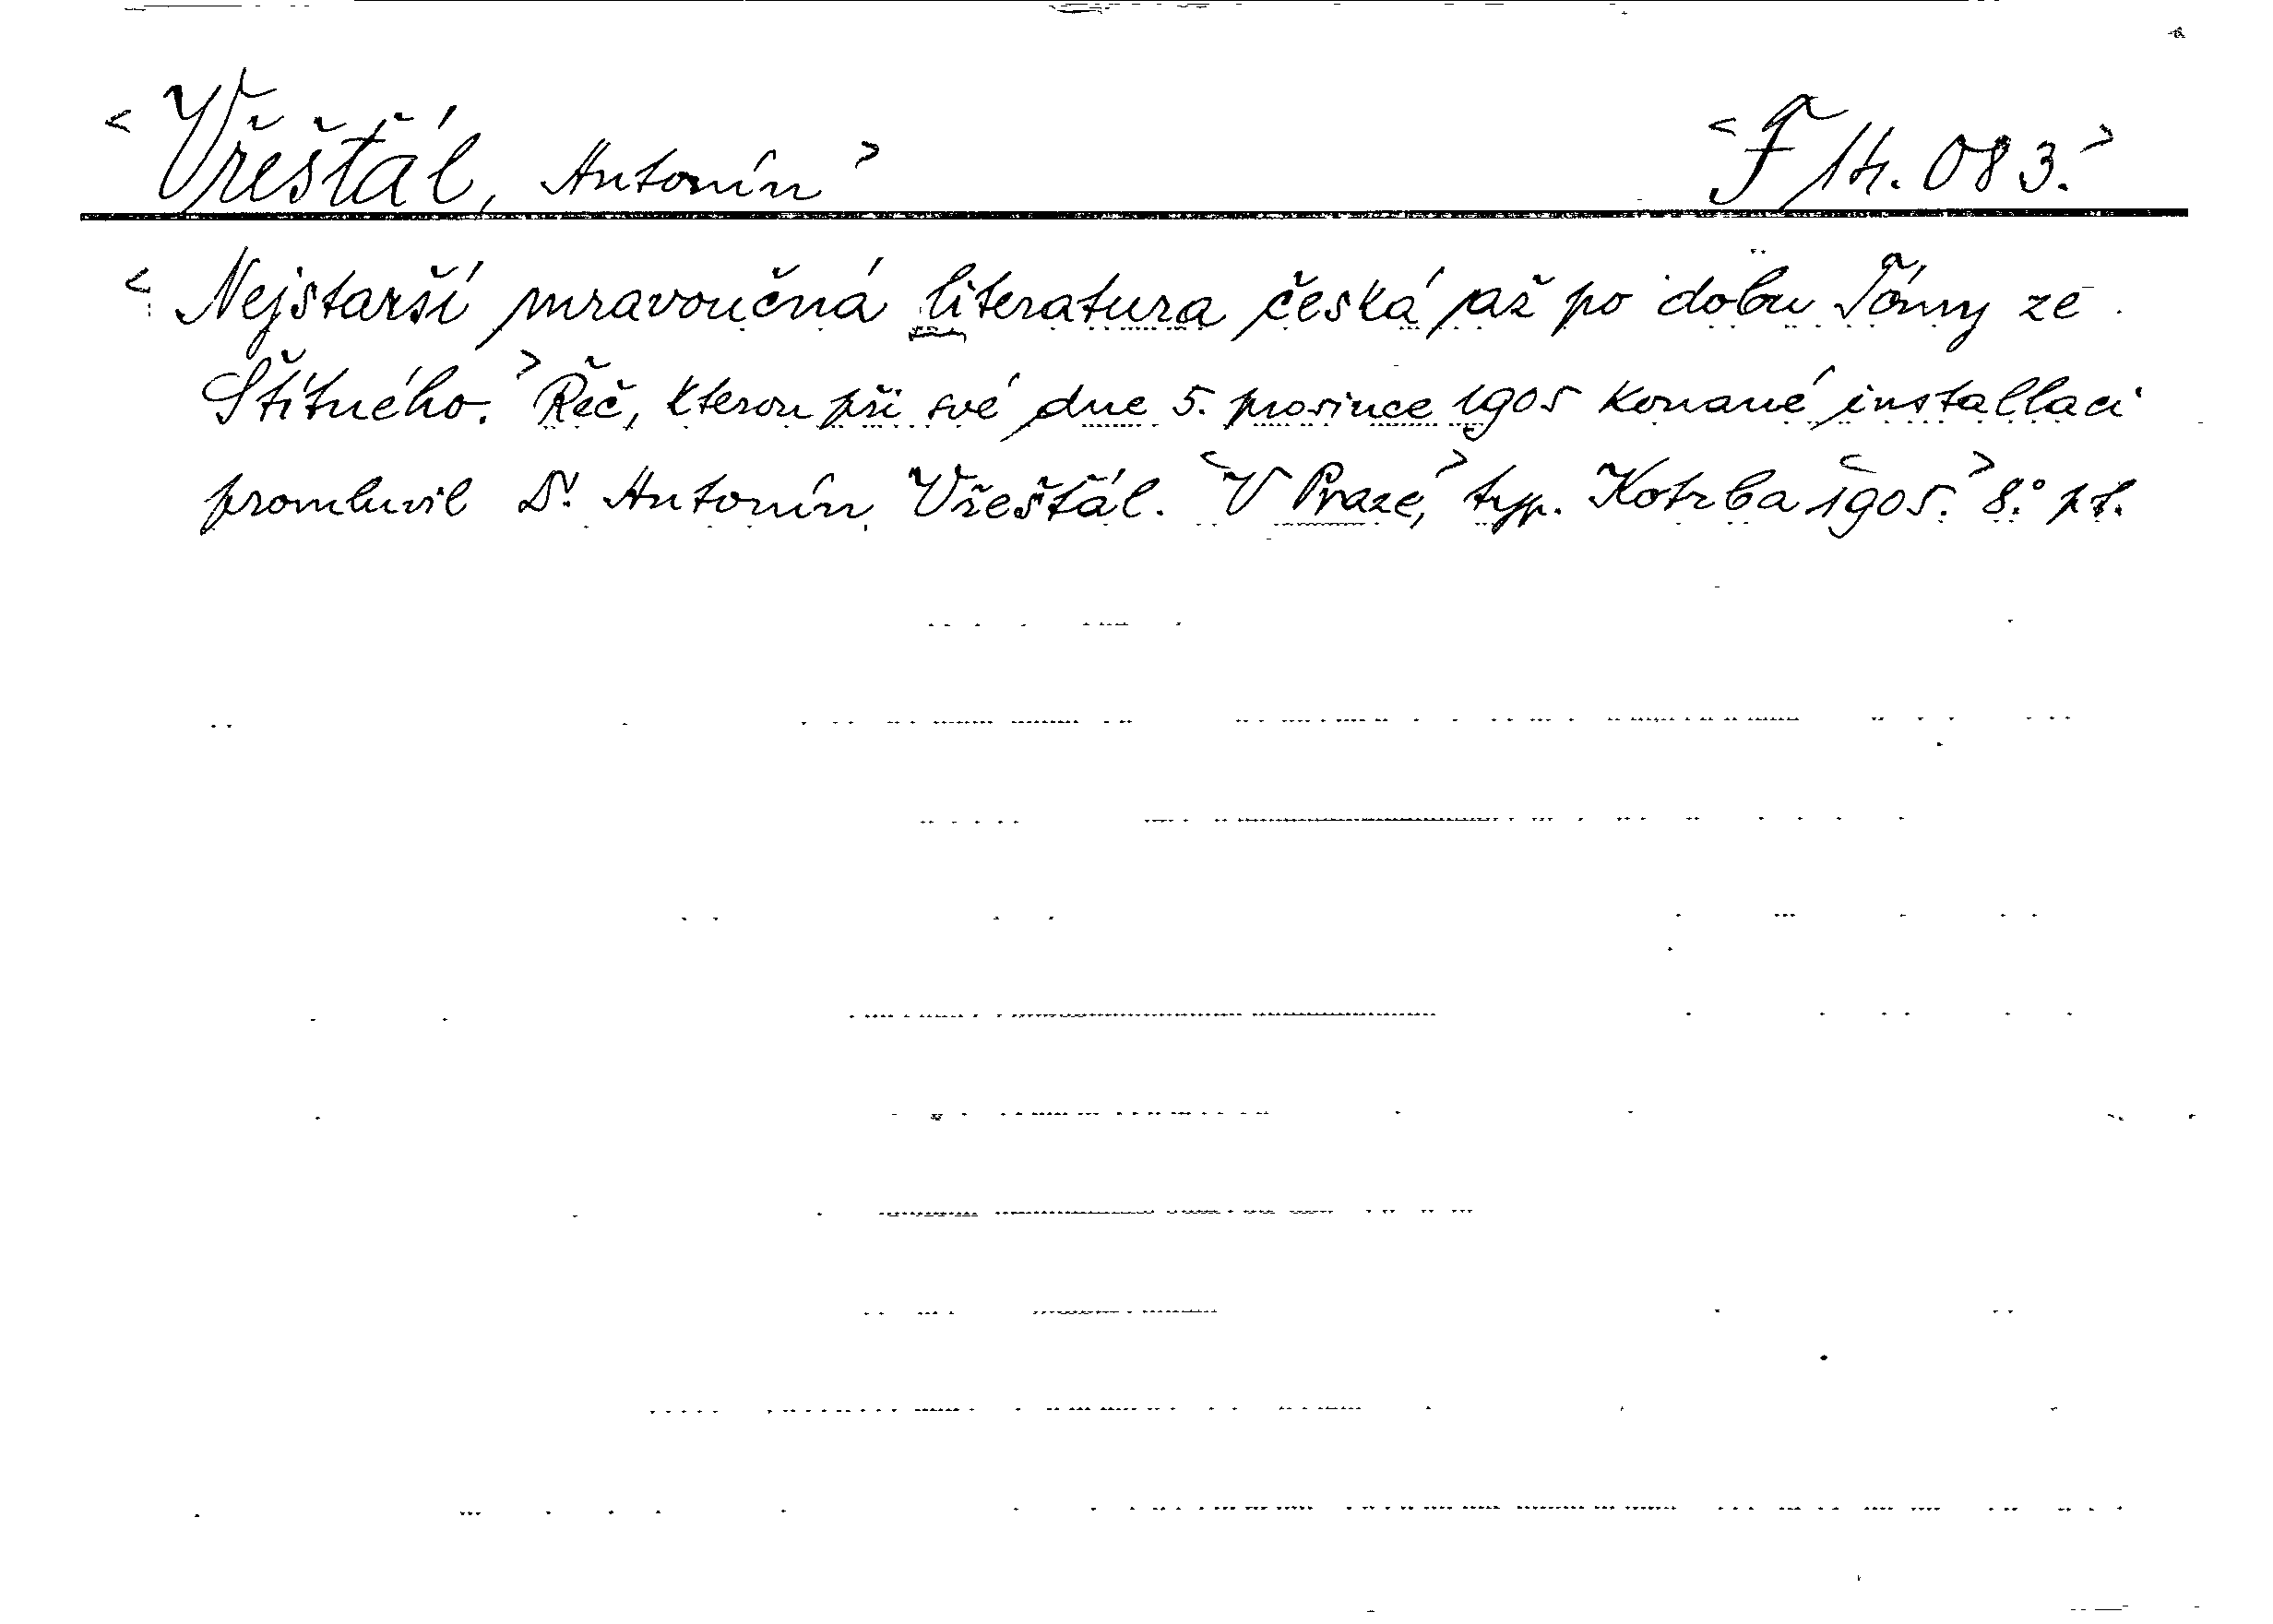 < Vřešťál, Antonín > < F 14.083. >
< Nejstarší mravoučná literatura česká až po dobu Tómy ze
Štítného. > Řeč, kterou při své dne 5. prosince 1905 konané installaci
promluvil Dr. Antonín Vřešťál. < V Praze, > typ. Kotrba < 1905. > 8.° pt.